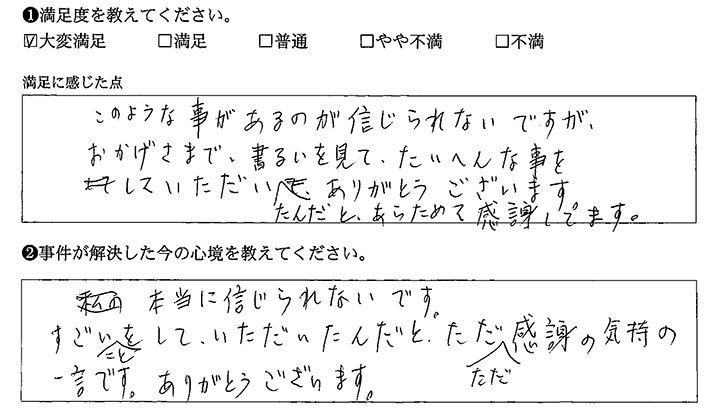 ❶満足度を教えてください。
☑大変満足 □満足 □普通 □やや不満 □不満
満足に感じた点
このような事があるのが信じられないですが、
おかげさまで、書るいを見て、たいへんな事を
していただいて、ありがとうございます。
たんだと、あらためて感謝してます。
❷事件が解決した今の心境を教えてください。
本当に信じられないです。
すごいことをして、いただいたんだと、ただただ感謝の気持の
一言です。ありがとうございます。